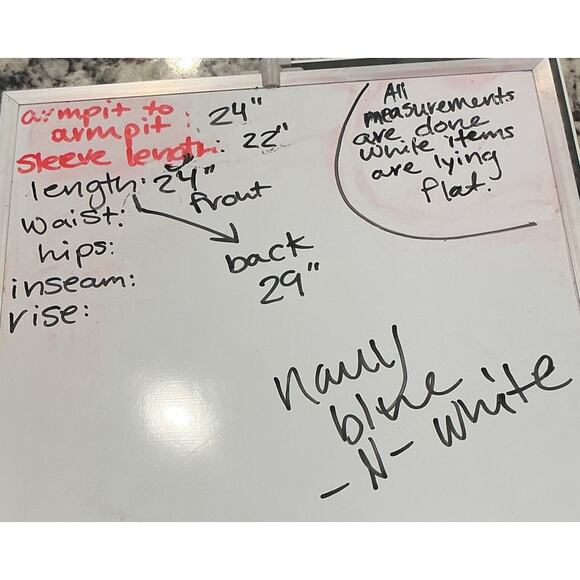 armpit to
armpit : 24"
sleeve length: 22"
length: 24"
front
waist:
hips:
back
29"
inseam:
rise:
All
measurements
are done
while items
are lying
flat.
navy
blue
-N- white